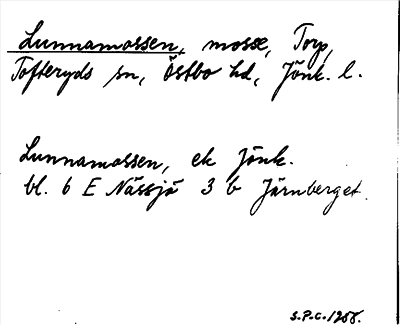 Lunnamossen, mosse, Torp,
Tofteryds sn, Östbo hd, Jönk. l.
Lunnamossen, ek Jönk.
bl. 6 E Nässjö 3 b Järnberget.
S.P.C.